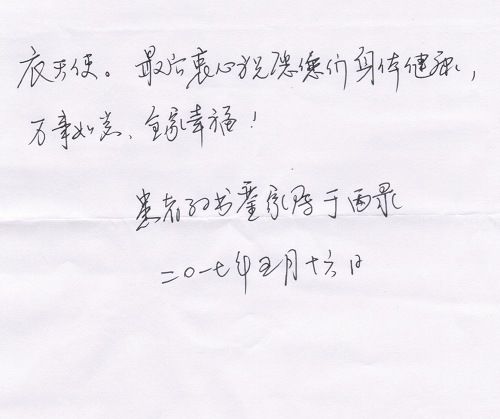 衣天使。最后衷心祝愿您们身体健康，
万事如意、全家幸福！
患者 家属于
二〇一七年五月十六日